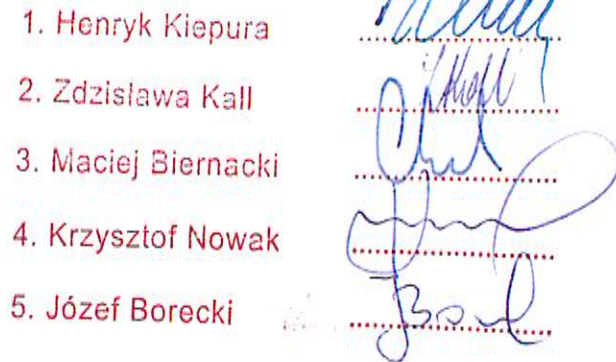 1. Henryk Kiepura
2. Zdzisława Kall
3. Maciej Biernacki
4. Krzysztof Nowak
5. Józef Borecki